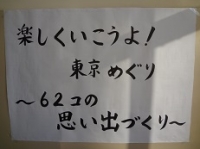 楽しくいこうよ!
東京めぐり
～62コの
思い出づくり～